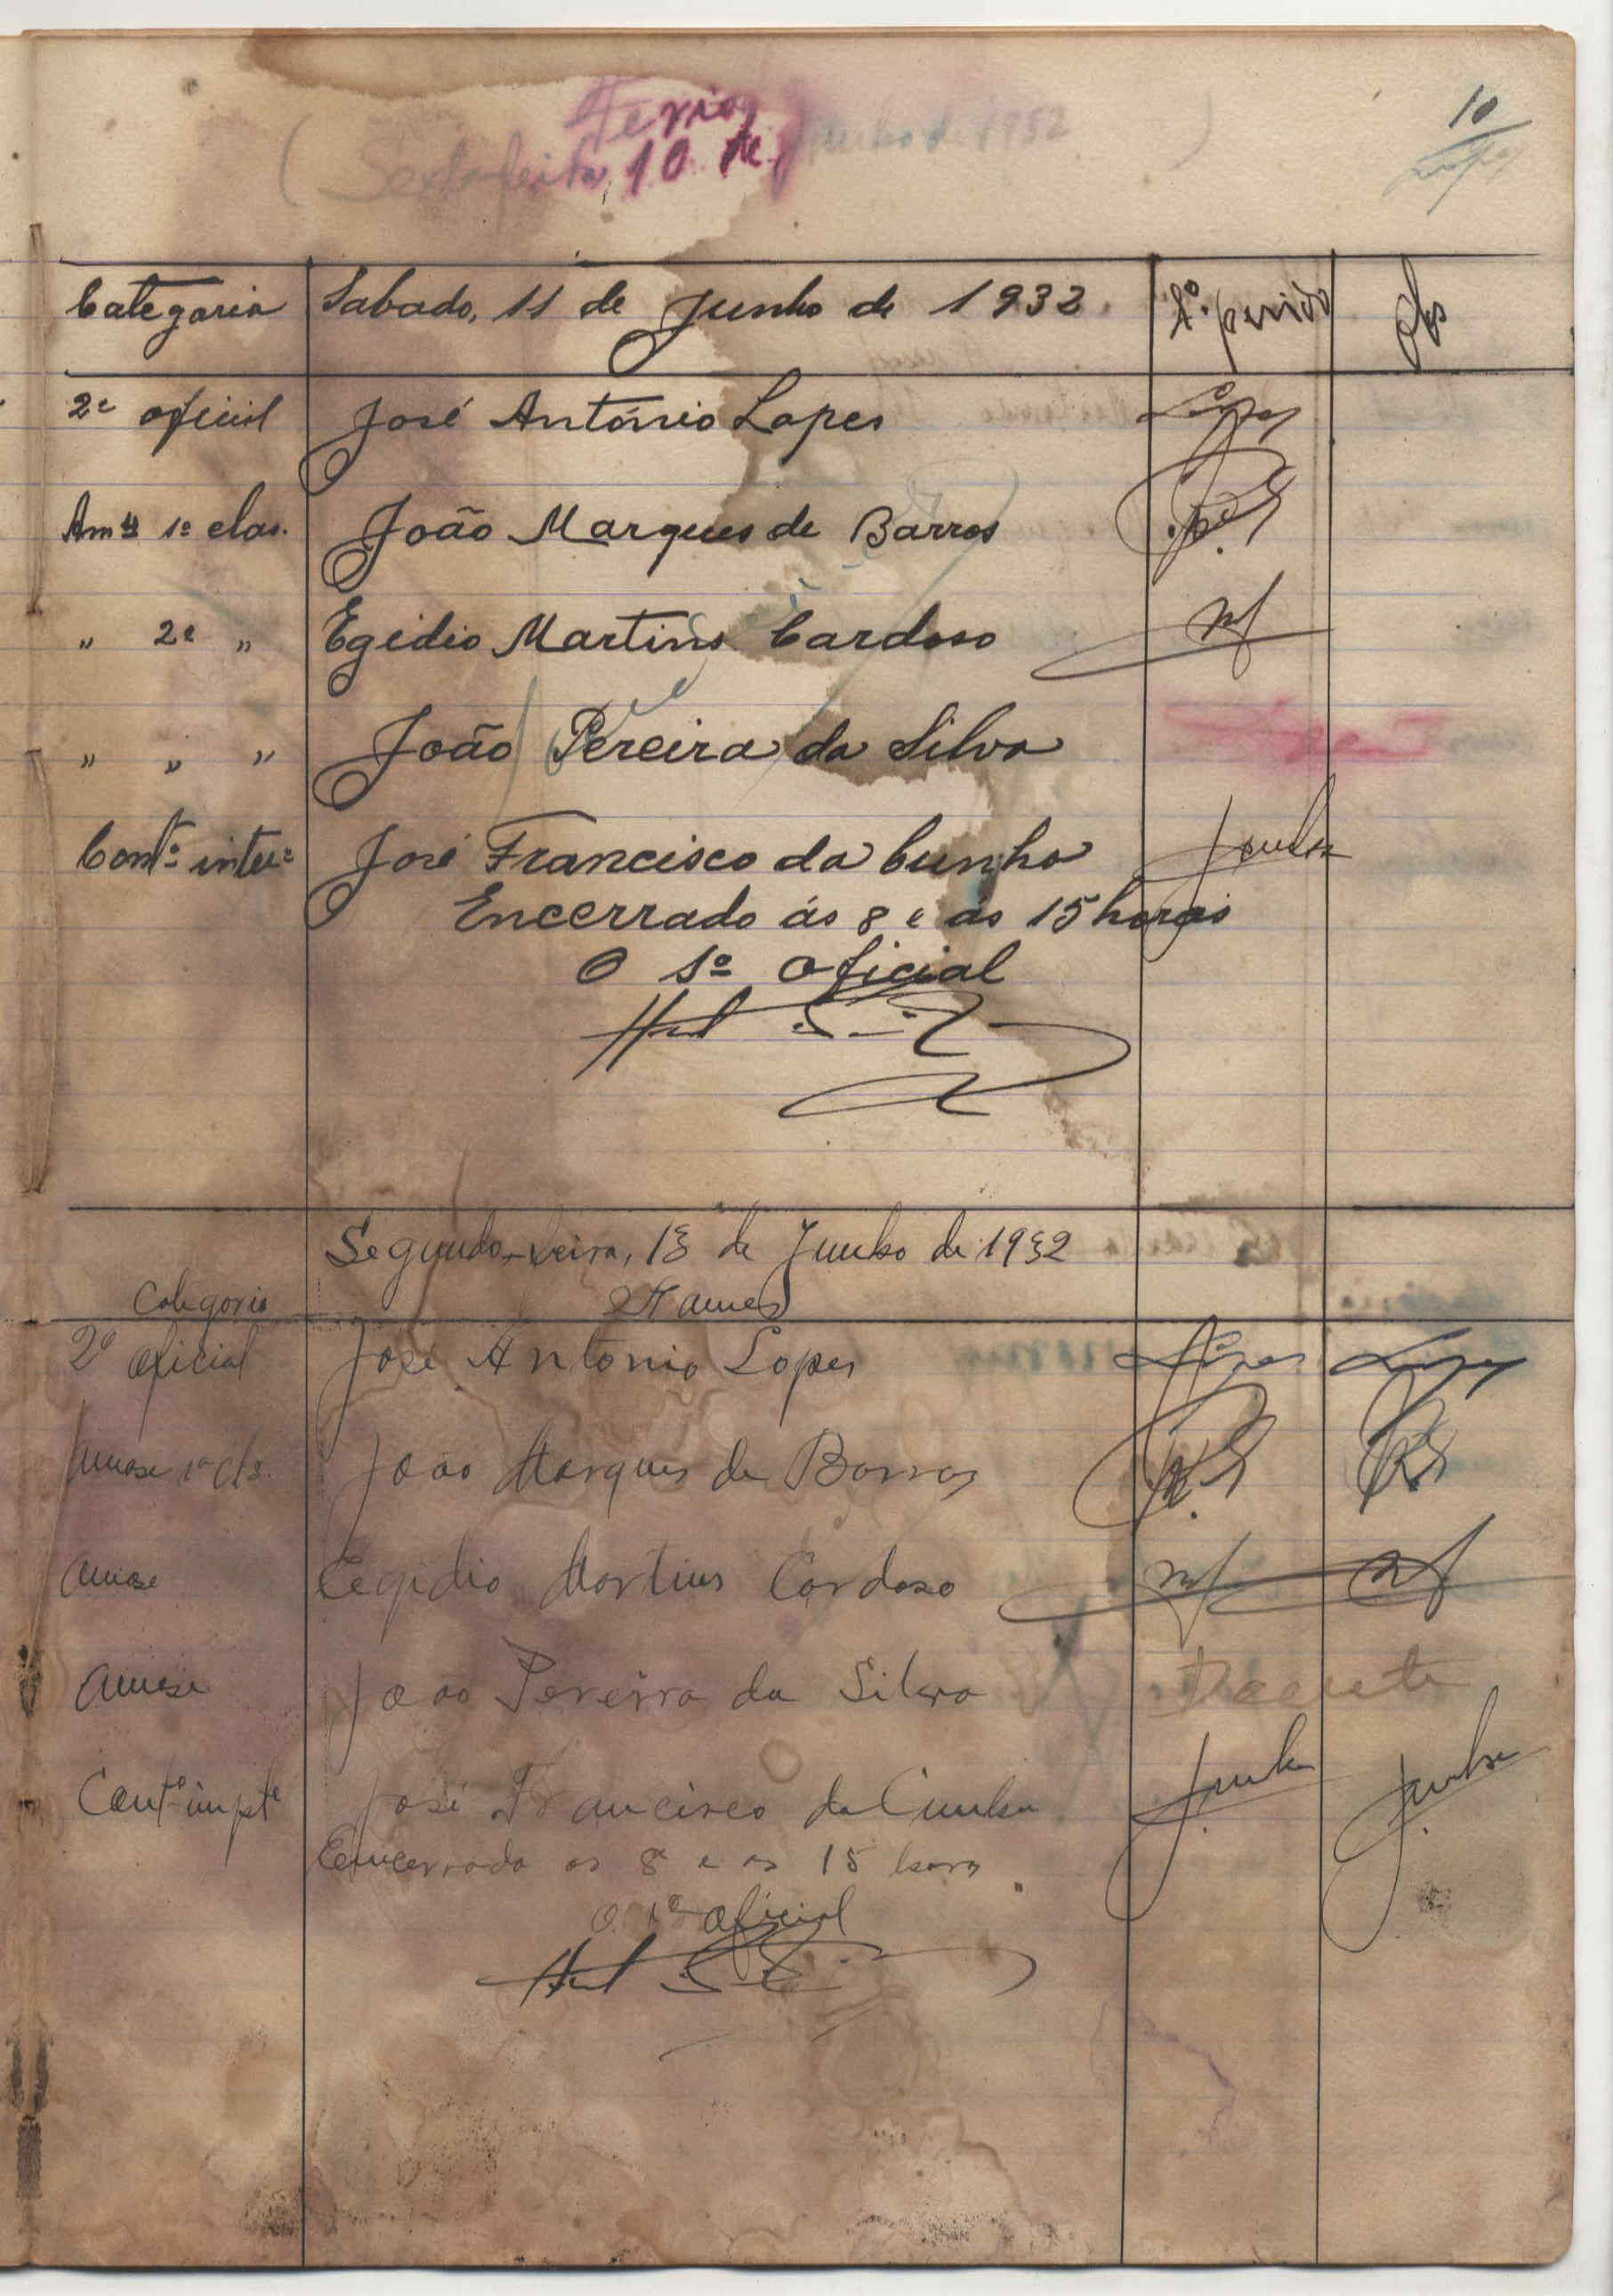 10
Feriado
(Sexta feira, 10 de Junho de 1932)
Categoria Sabado, 11 de Junho de 1932. 1º. periodo Obs
2º oficial José António Lopes Lopes
1ª clas. João Marques de Barros
" 2ª " Egidio Martins Cardoso
" " " João Pereira da Silva
José Francisco da Cunha Cunha
Encerrado ás 8 e ás 15 horas
O 1º oficial
Segunda-feira, 13 de Junho de 1932
Categoria Nomes
2º oficial José Antonio Lopes Lopes Lopes
1ª cls. João Marques de Barros
Egidio Martins Cardoso
João Pereira da Silva Doente
José Francisco da Cunha Cunha Cunha
Encerrado as 8 e as 15 horas.
O 1º oficial